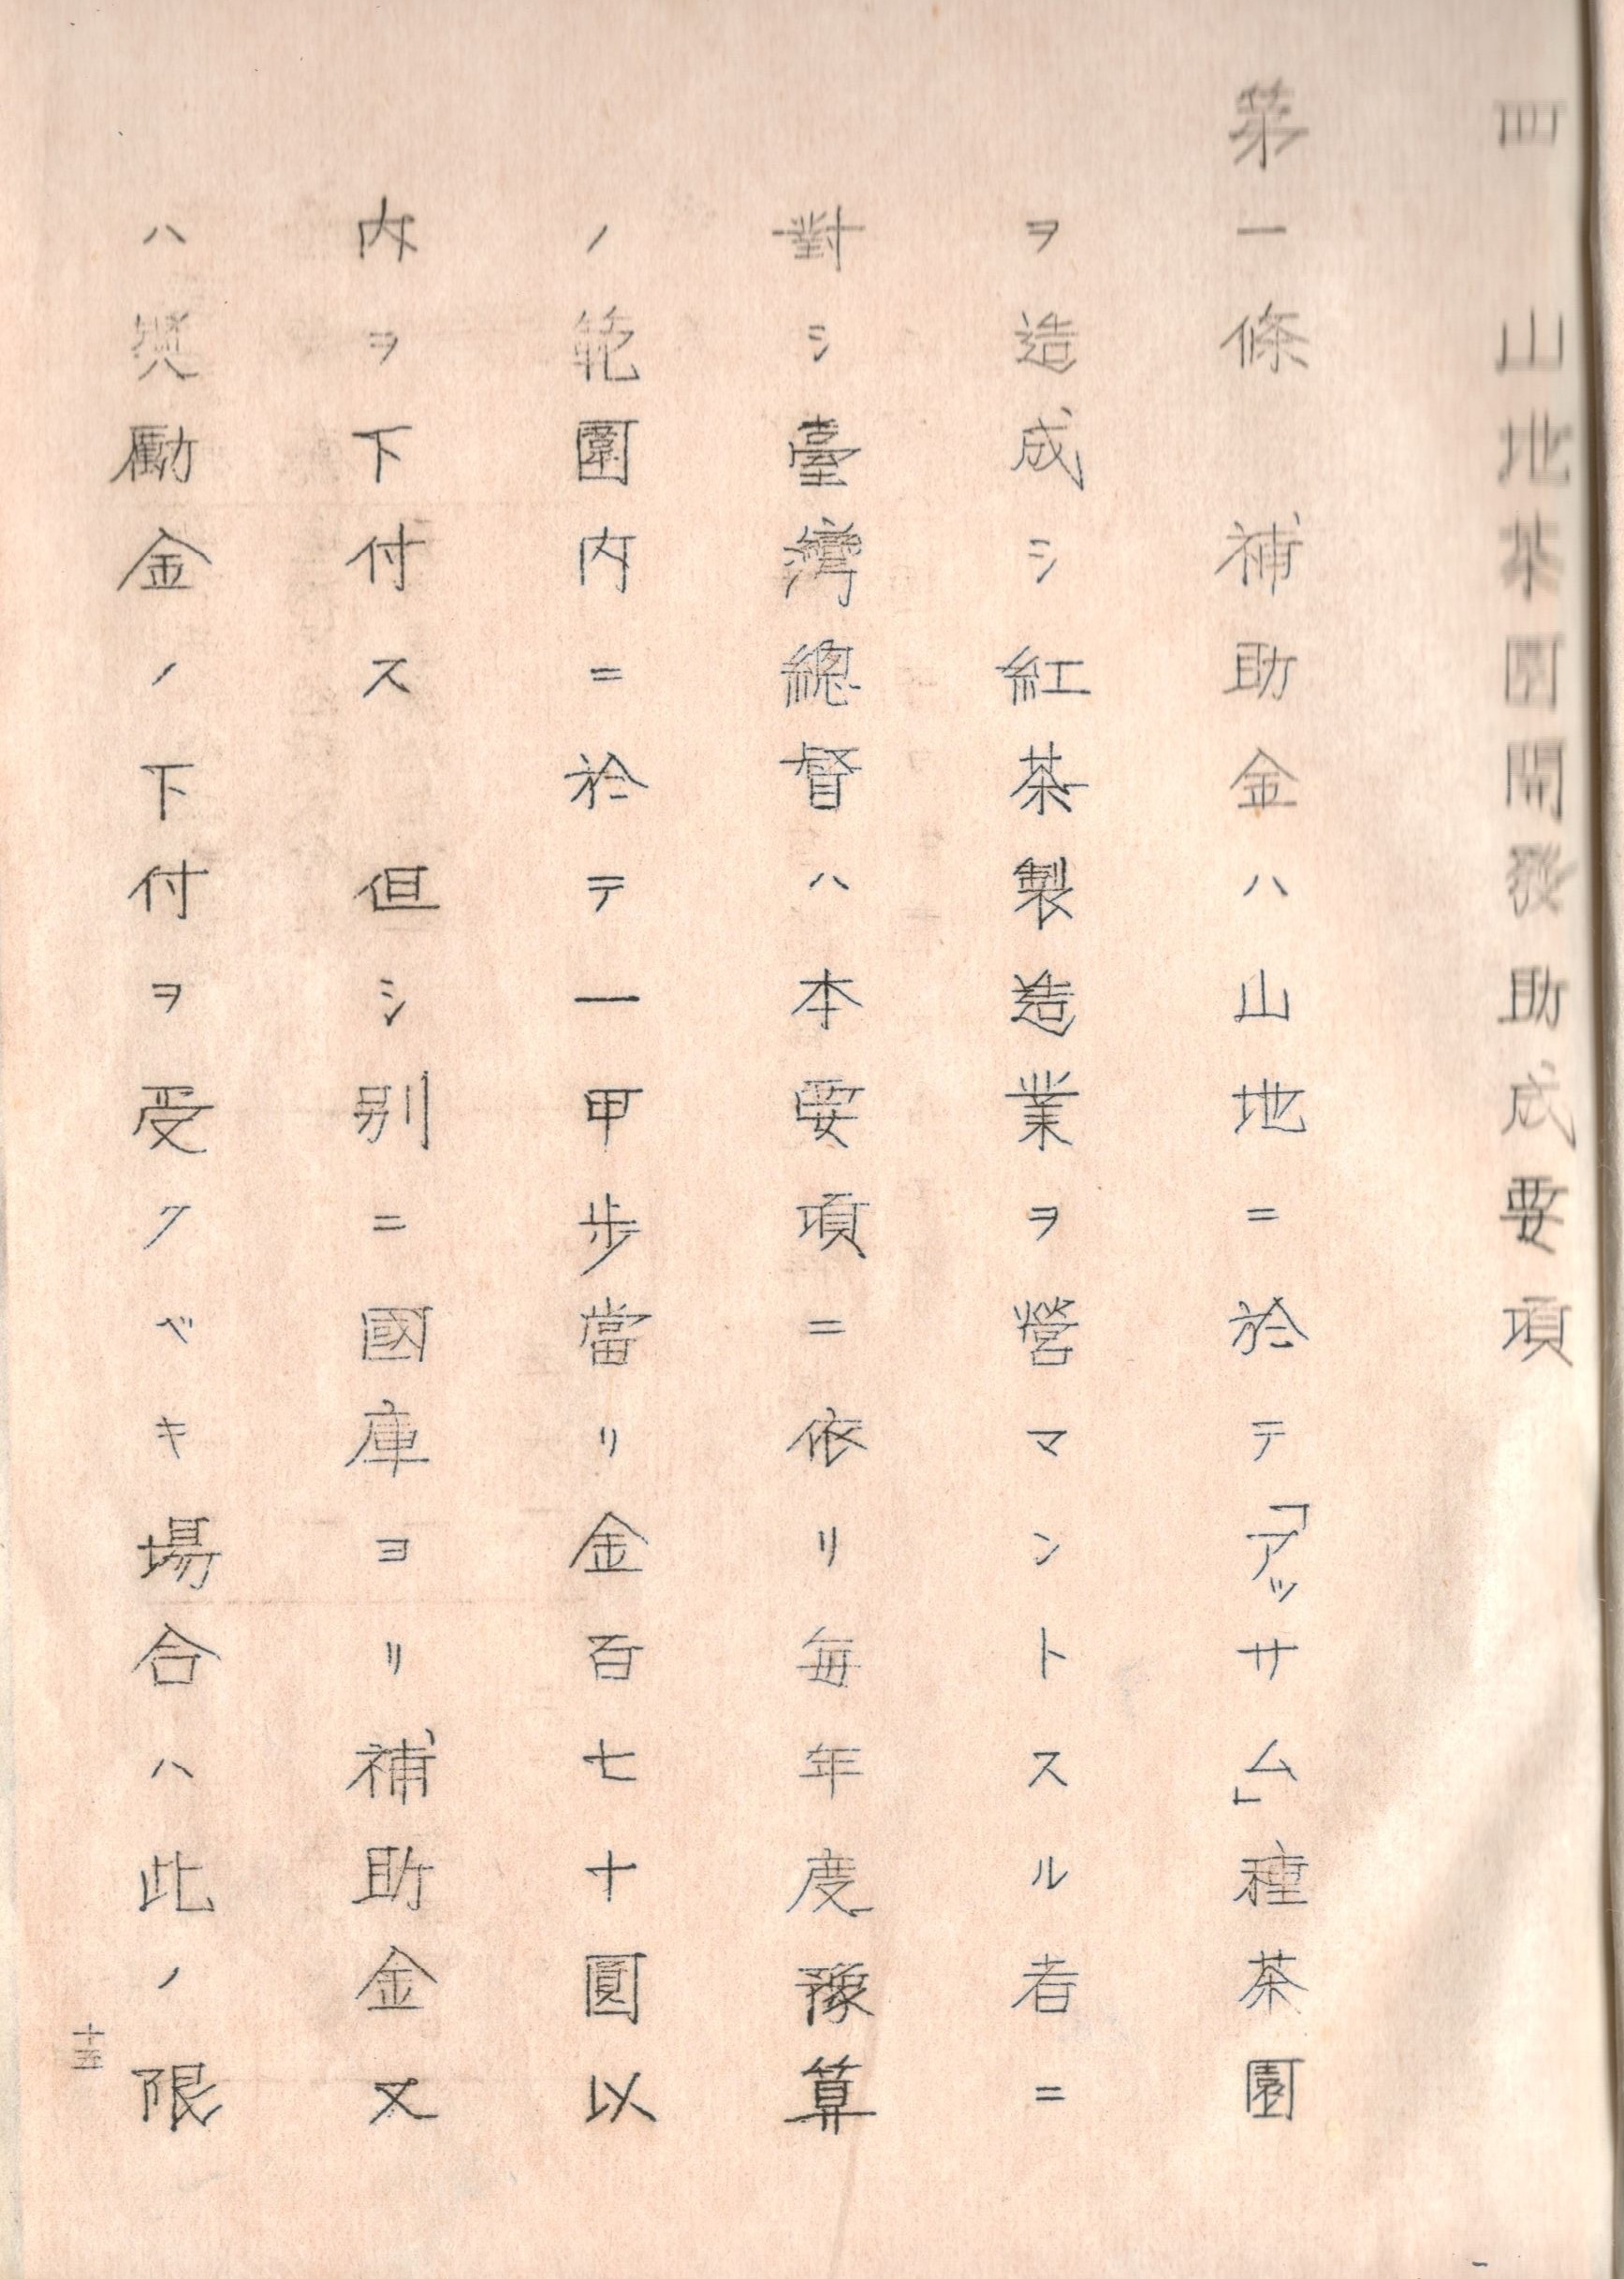 四　山地茶園開發助成要項
第一條　補助金ハ山地ニ於テ「アッサム」種茶園
ヲ造成シ紅茶製造業ヲ營マントスル者ニ
對シ臺灣總督ハ本要項ニ依リ毎年度豫算
ノ範圍内ニ於テ一甲歩當リ金百七十圓以
内ヲ下付ス　但シ別ニ國庫ヨリ補助金又
ハ奬勵金ノ下付ヲ受クベキ場合ハ此ノ限
十五